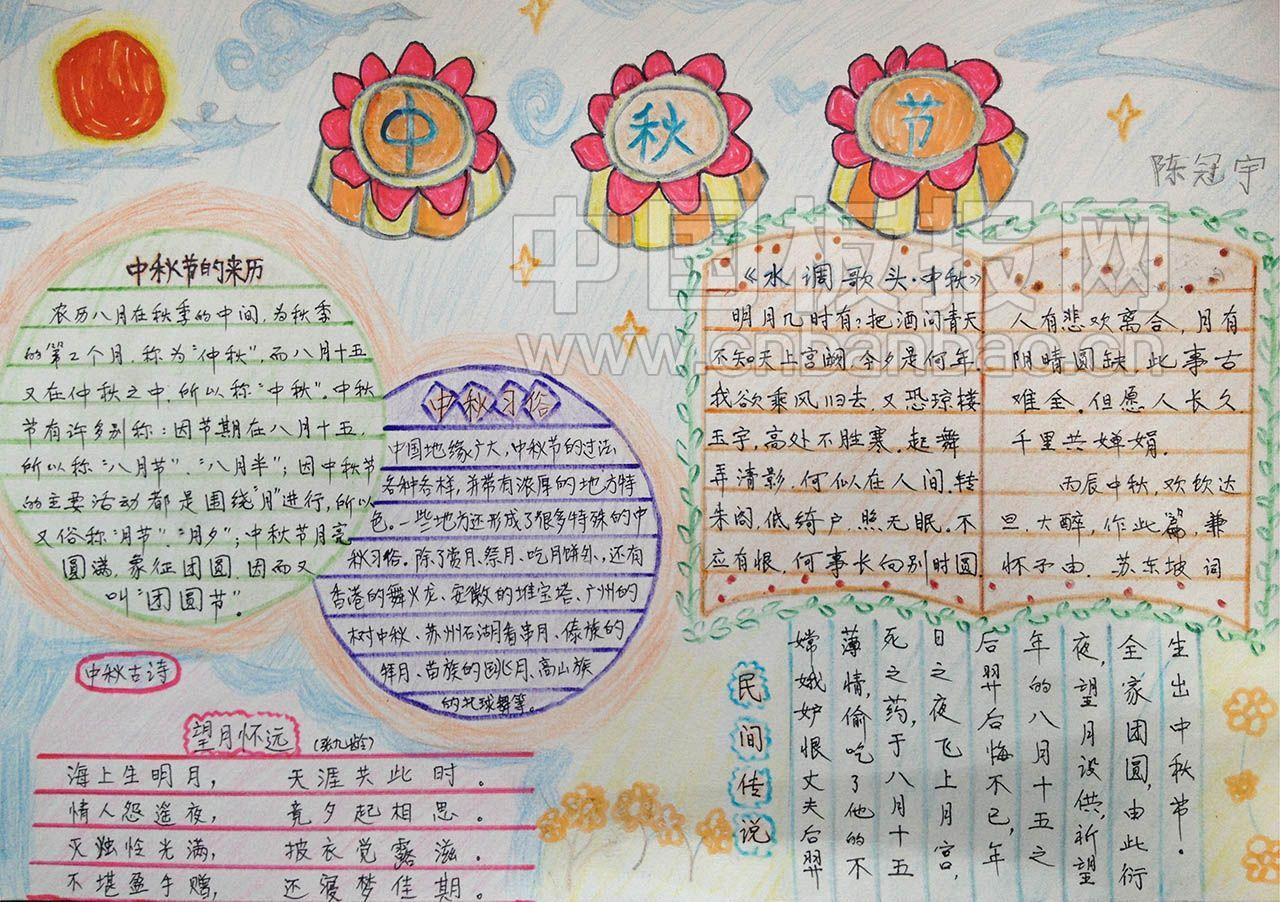 中秋节
陈冠宇
中国板报网
www.cnbanbao.cn
中秋节的来历
农历八月在秋季的中间，为秋季
的第2个月，称为“仲秋”，而八月十五
又在仲秋之中，所以称“中秋”。中秋
节有许多别称：因节期在八月十五，
所以称“八月节”、“八月半”；因中秋节
的主要活动都是围绕“月”进行，所以
又俗称“月节”、“月夕”；中秋节月亮
圆满，象征团圆，因而又
叫“团圆节”。
中秋习俗
中国地缘广大，中秋节的过法
各种各样，并带有浓厚的地方特
色。一些地方还形成了很多特殊的中
秋习俗。除了赏月、祭月、吃月饼外，还有
香港的舞火龙、安徽的堆宝塔、广州的
树中秋、苏州石湖看串月、傣族的
拜月、苗族的跳月、高山族
的托球舞等。
《水调歌头·中秋》
明月几时有？把酒问青天
不知天上宫阙，今夕是何年。
我欲乘风归去，又恐琼楼
玉宇，高处不胜寒。起舞
弄清影，何似在人间。转
朱阁，低绮户，照无眠。不
应有恨，何事长向别时圆
人有悲欢离合，月有
阴晴圆缺，此事古
难全。但愿人长久
千里共婵娟。
丙辰中秋，欢饮达
旦，大醉，作此篇，兼
怀子由。苏东坡词
中秋古诗
望月怀远 （张九龄）
海上生明月， 天涯共此时。
情人怨遥夜， 竟夕起相思。
灭烛怜光满， 披衣觉露滋。
不堪盈手赠， 还寝梦佳期。
民间传说
嫦娥妒恨丈夫后羿
薄情，偷吃了他的不
死之药，于八月十五
日之夜飞上月宫，
后羿后悔不已，年
年的八月十五之
夜，望月设供，祈望
全家团圆，由此衍
生出中秋节。